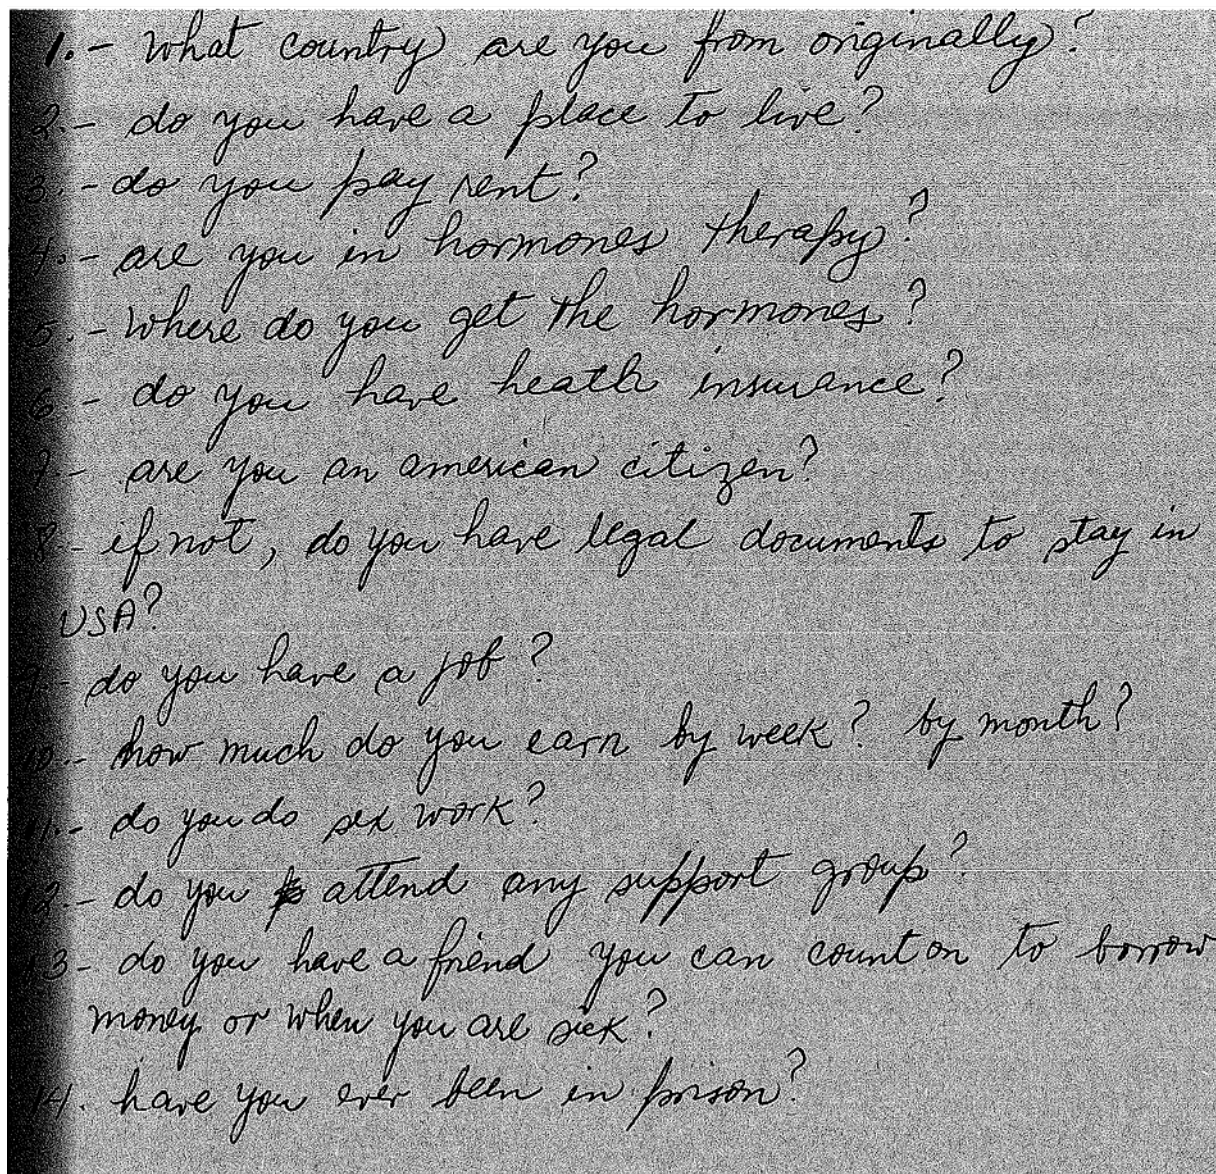 1.- What country are you from originally?
2.- do you have a place to live?
3.- do you pay rent?
4.- are you in hormones therapy?
5.- Where do you get the hormones?
6.- do you have heath insurance?
7.- are you an american citizen?
8.- if not, do you have legal documents to stay in
USA?
9.- do you have a job?
10.- how much do you earn by week? by month?
11.- do you do sex work?
12.- do you attend any support group?
13- do you have a friend you can count on to borrow
money or when you are sick?
14. have you ever been in prison?